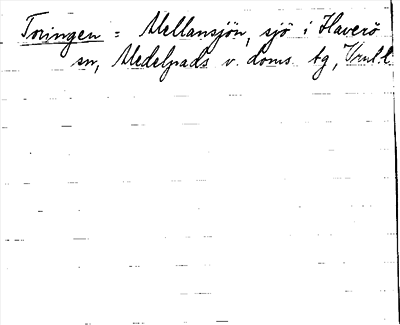 Toringen = Mellansjön, sjö i Haverö
sn, Medelpads v. doms. tg, Vnl.l.